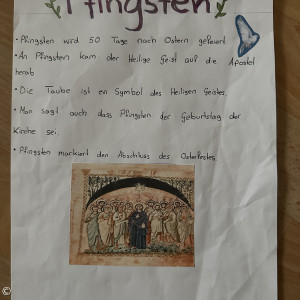 Pfingsten
• Pfingsten wird 50 Tage nach Ostern gefeiert.
• An Pfingsten kam der Heilige Geist auf die Apostel
herab
• Die Taube ist en Symbol des Heiligen Geistes.
• Man sagt auch dass Pfingsten der Geburtstag der
Kirche sei.
• Pfingsten markiert den Abschluss des Osterfestes
©